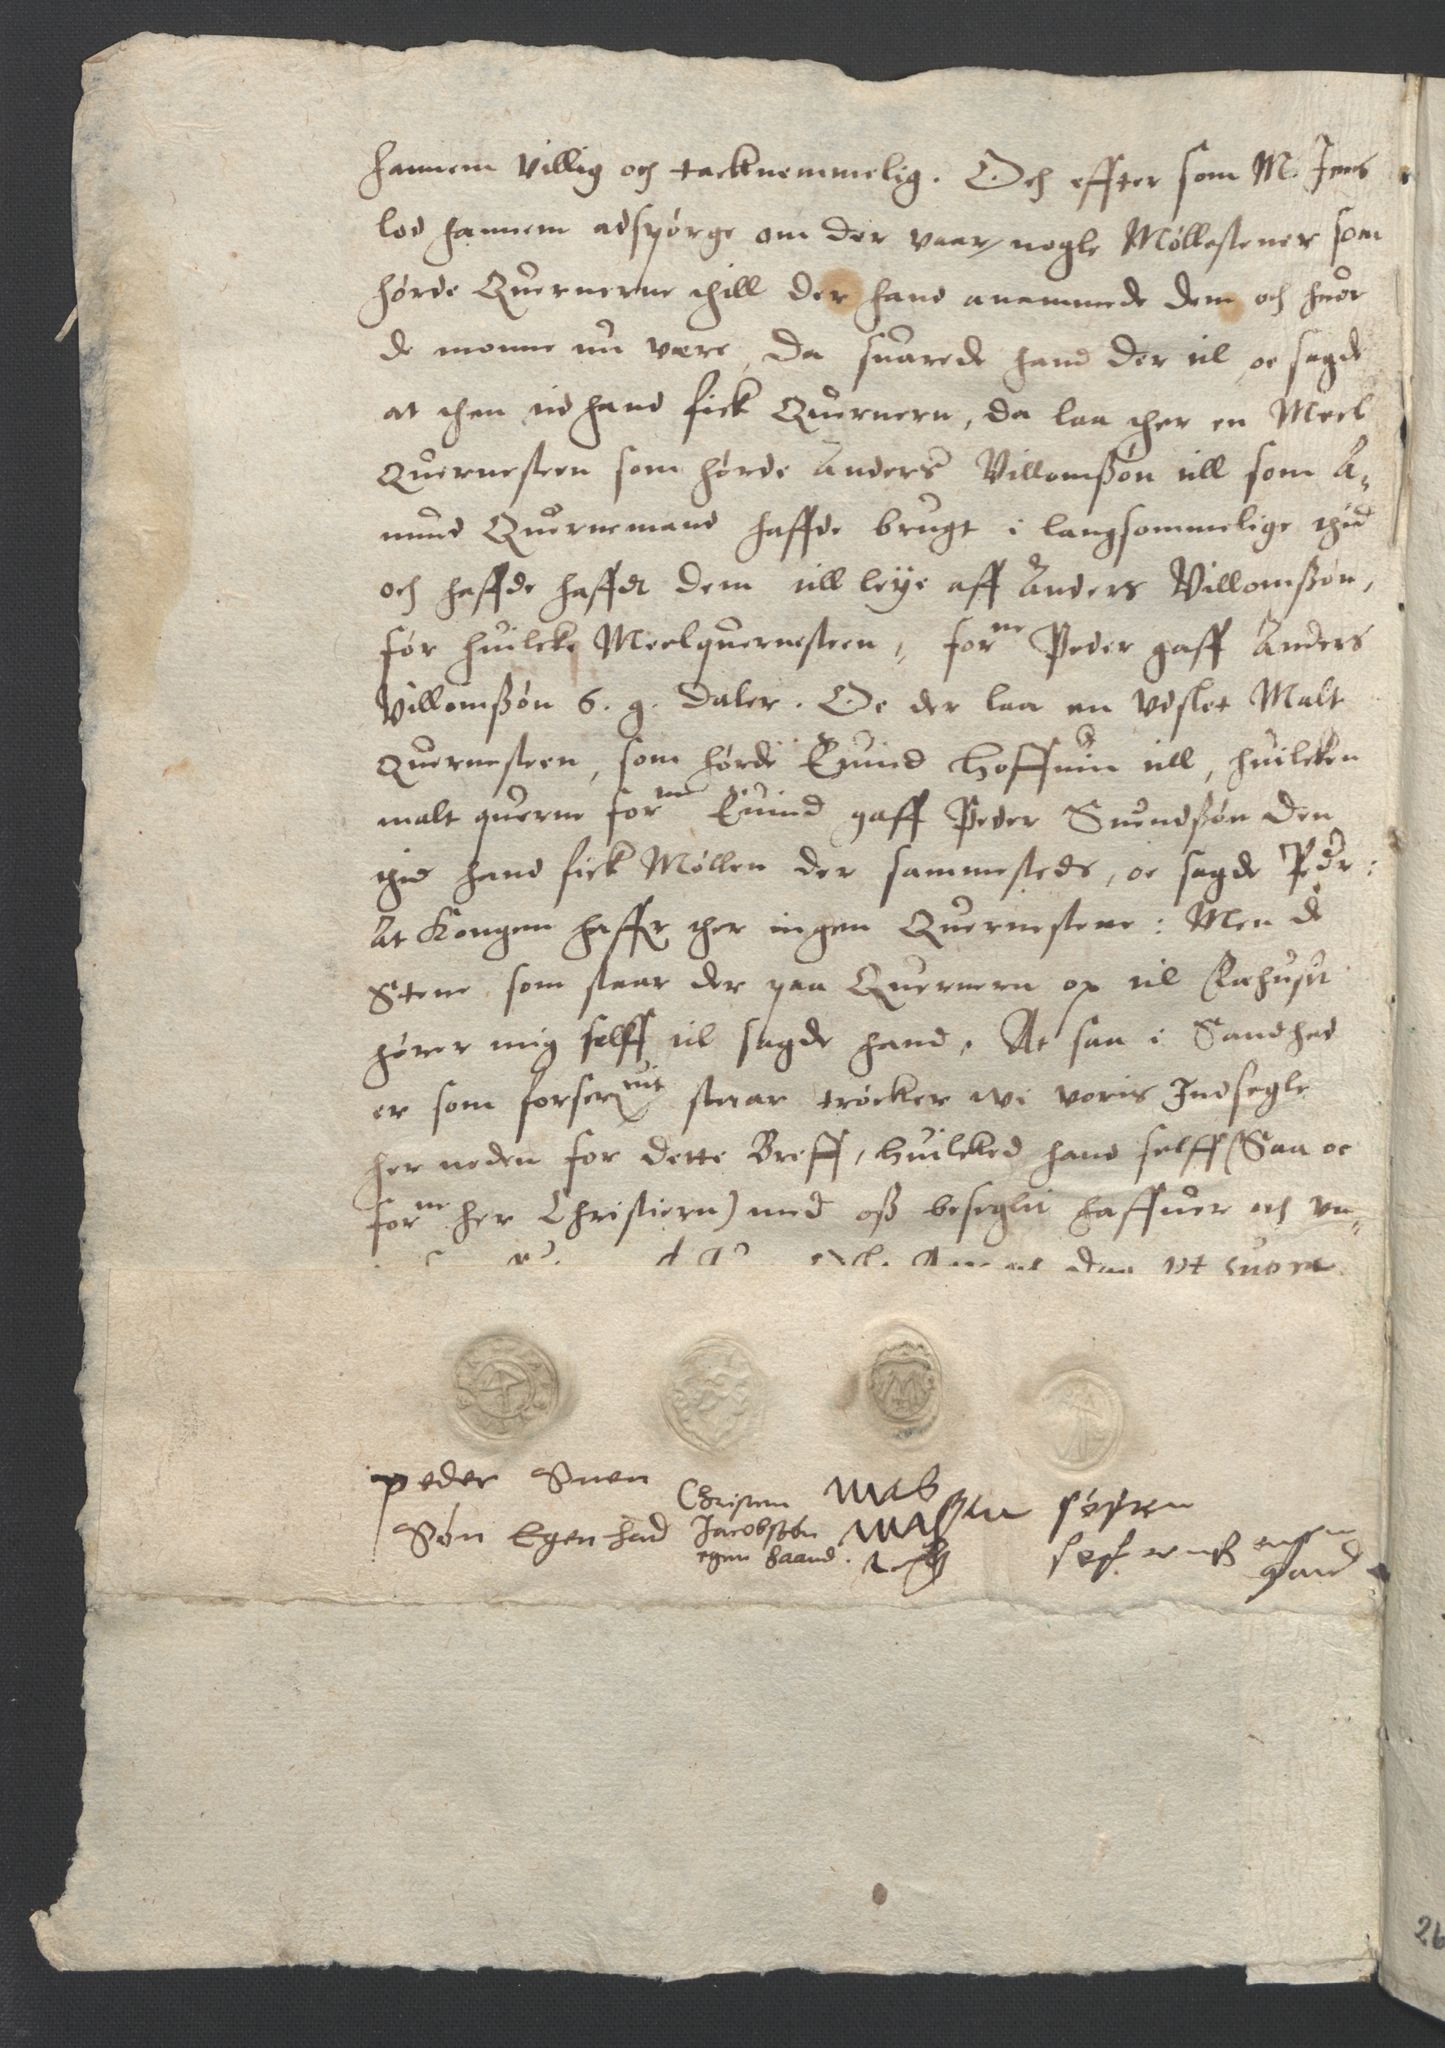 hannem villig och tacknemmelig. Och effter som M. Jens
lod hannem adspørge om der vaar nogle Møllestener som
hørde Quernerne thill der hand anammede dem och huor
de monne nu være, Da suarede hand der til oc sagde
at then tid hand fick Quernern, da laa ther en Meel
Quernesteen som hørde Anders Villomssøn till som A-
mund Quernemand haffde brugt i langsommelige thid
och haffde hafft dem till leye aff Anders Villomssøn,
for huilcke Meelquernesteen, forne Peder gaff Anders
Villomssøn 6. g. Daler. Oc der laa en vdslet Malt
Quernesteen, som hørde Euind Hoffuin till, huilcken
malt querne forne Euind gaff Peder Suendssøn den
thid hand fick Møllen der sammesteds, oc sagde Peder:
At Kongen haffr ther ingen Quernestene: Men de
Stene som staar der paa Quernern op til
hører mig selff til sagde hand. At saa i Sandhed
er som forscreuit staar trøcker wi voris Indsegle
her neden for dette Breff, huilcked hand selff (Saa oc
forne her Christiern) med oss beseglit haffuer och vn-
dag vt supra
peder Suen Christen Mas søfren
Søn Egen had Jacobssøn
egen haand.